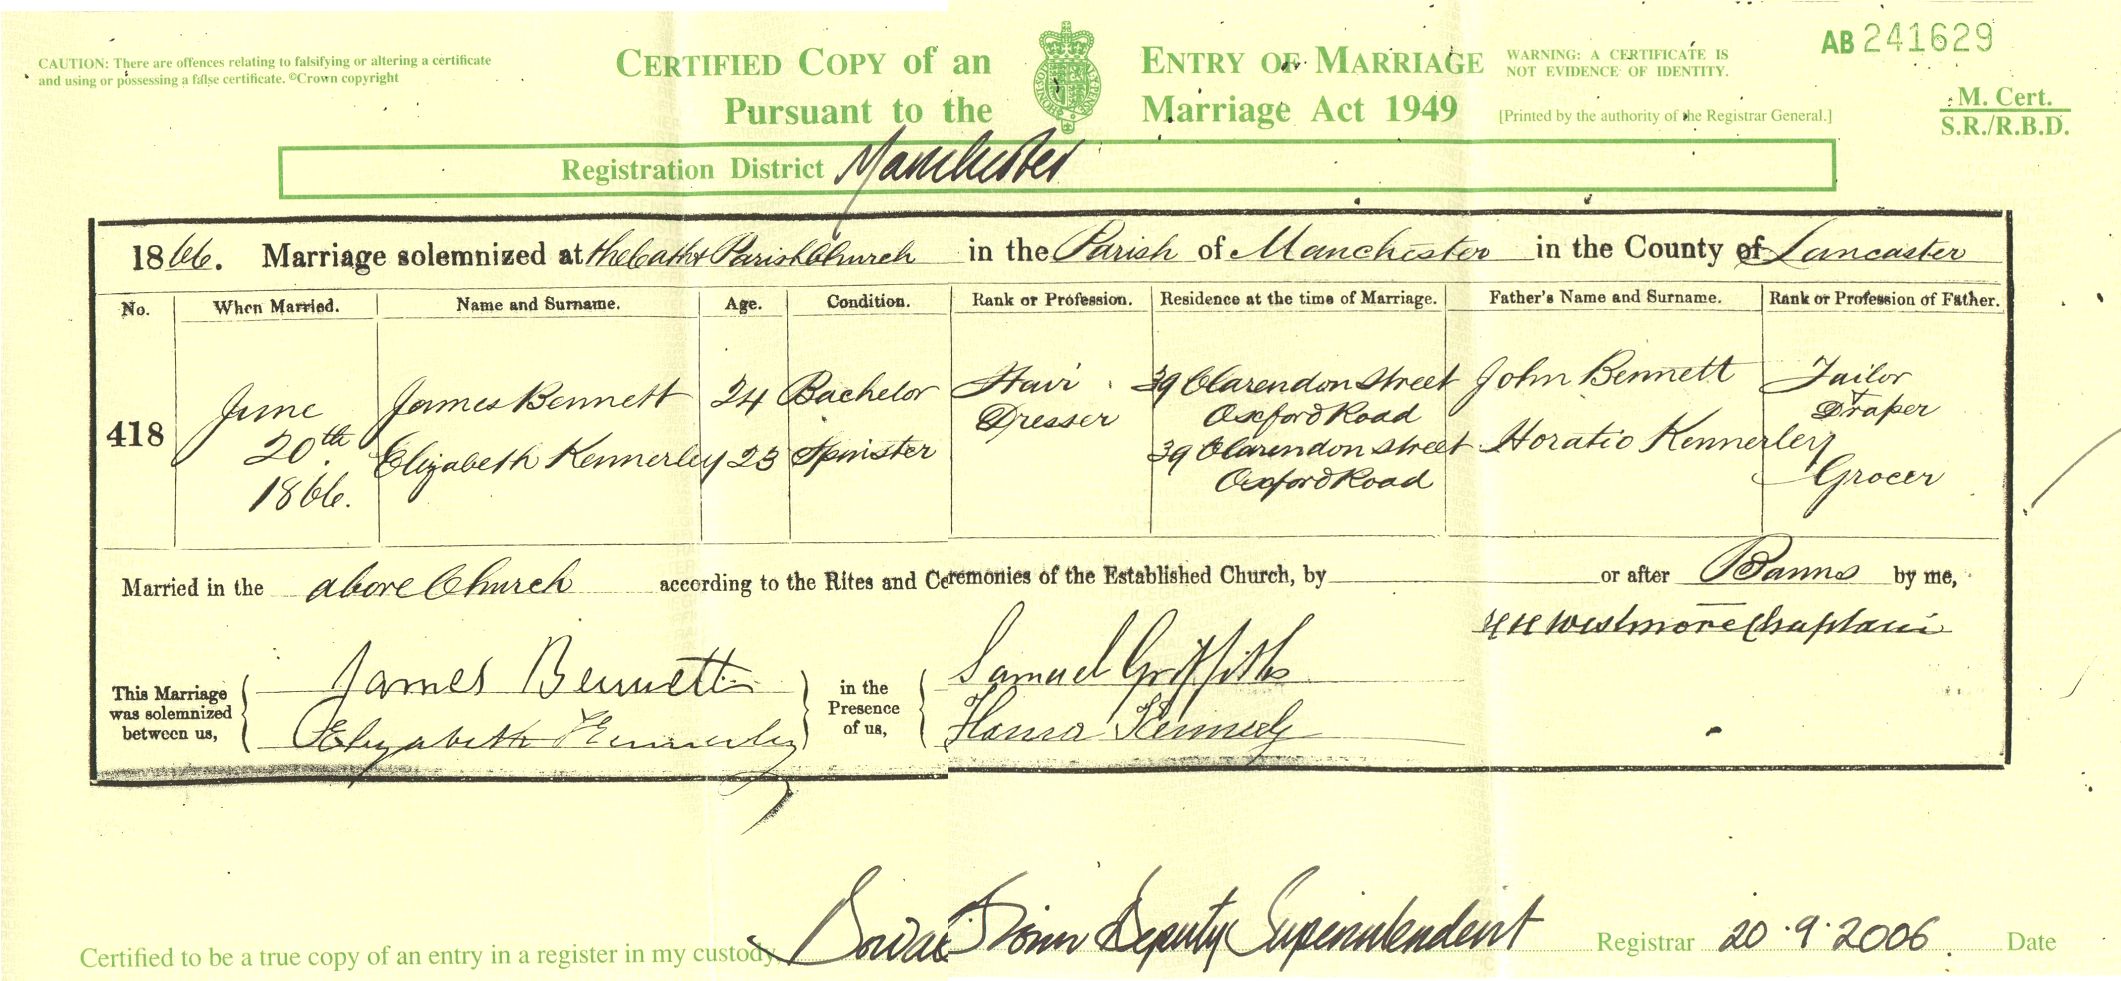 CAUTION: There are offences relating to falsifying or altering a certificate
and using or possessing a false certificate. ©Crown copyright
CERTIFIED COPY of an ENTRY OF MARRIAGE
Pursuant to the Marriage Act 1949
WARNING: A CERTIFICATE IS
NOT EVIDENCE OF IDENTITY.
[Printed by the authority of the Registrar General.]
AB 241629
M. Cert.
S.R./R.B.D.
Registration District Manchester
1866. Marriage solemnized at the Cath & Parish Church in the Parish of Manchester in the County of Lancaster
No. When Married. Name and Surname. Age. Condition. Rank or Profession. Residence at the time of Marriage. Father's Name and Surname. Rank or Profession of Father.
418 June 20th 1866.
James Bennett 24 Bachelor Hair Dresser 39 Clarendon Street Oxford Road John Bennett Tailor & Draper
Elizabeth Kennerley 23 Spinster 39 Clarendon Street Oxford Road Horatio Kennerley Grocer
Married in the above Church according to the Rites and Ceremonies of the Established Church, by or after Banns by me,
Westmore Chaplain
This Marriage
was solemnized
between us,
James Bennett
Elizabeth Kennerley
in the
Presence
of us,
Samuel Griffiths
Kennerly
Certified to be a true copy of an entry in a register in my custody, Deputy Superintendent Registrar 20.9.2006 Date